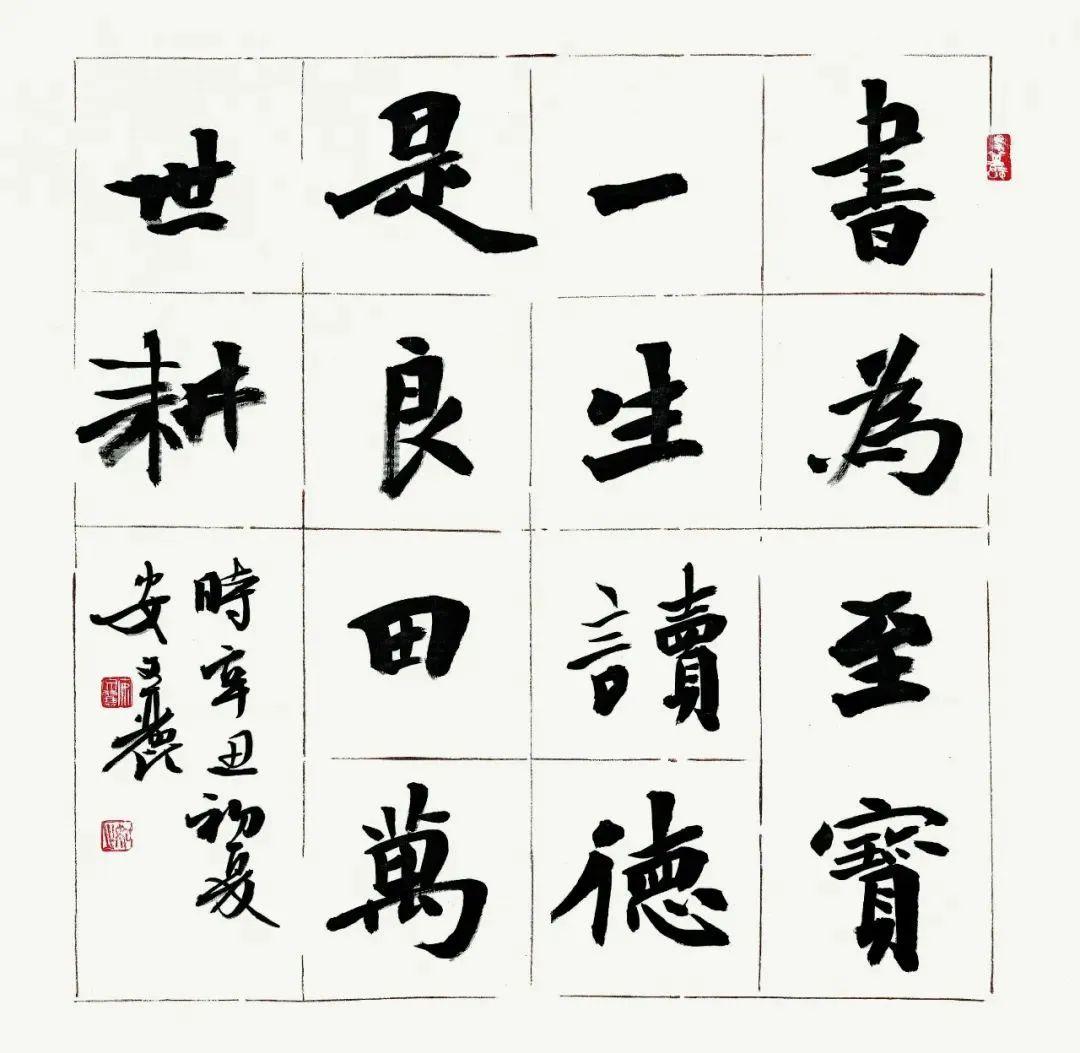 書為至寶
一生讀德
是良田萬
世耕
時辛丑初夏
安文麗